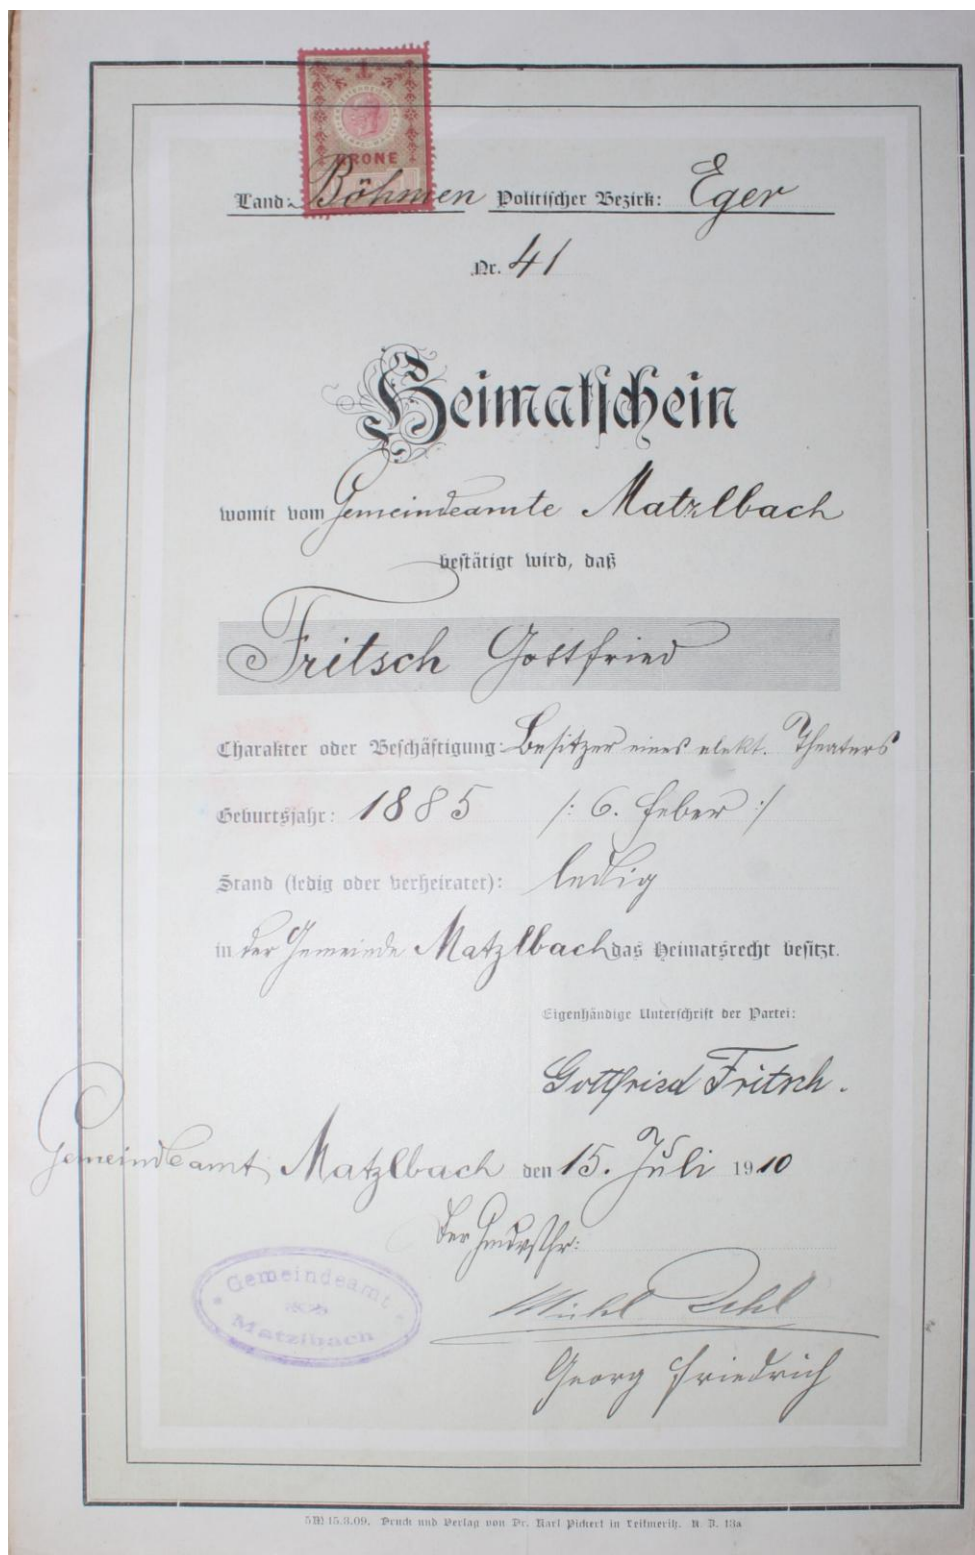 KRONE
Land: Böhmen Politischer Bezirk: Eger
Nr. 41
Heimatschein
womit vom Gemeindeamte Matzlbach
bestätigt wird, daß
Fritsch Gottfried
Charakter oder Beschäftigung: Besitzer eines elekt. Theaters
Geburtsjahr: 1885 /: 6. Feber :/
Stand (ledig oder verheiratet): ledig
in der Gemeinde Matzlbach das Heimatsrecht besitzt.
Eigenhändige Unterschrift der Partei:
Gottfried Fritsch.
Gemeindeamt Matzlbach den 15. Juli 1910
Der
Gemeindeamt
Matzlbach
Georg Friedrich
15.3.09. Druck und Verlag von Dr. Karl Pickert in Leitmeritz. R. B. 13a